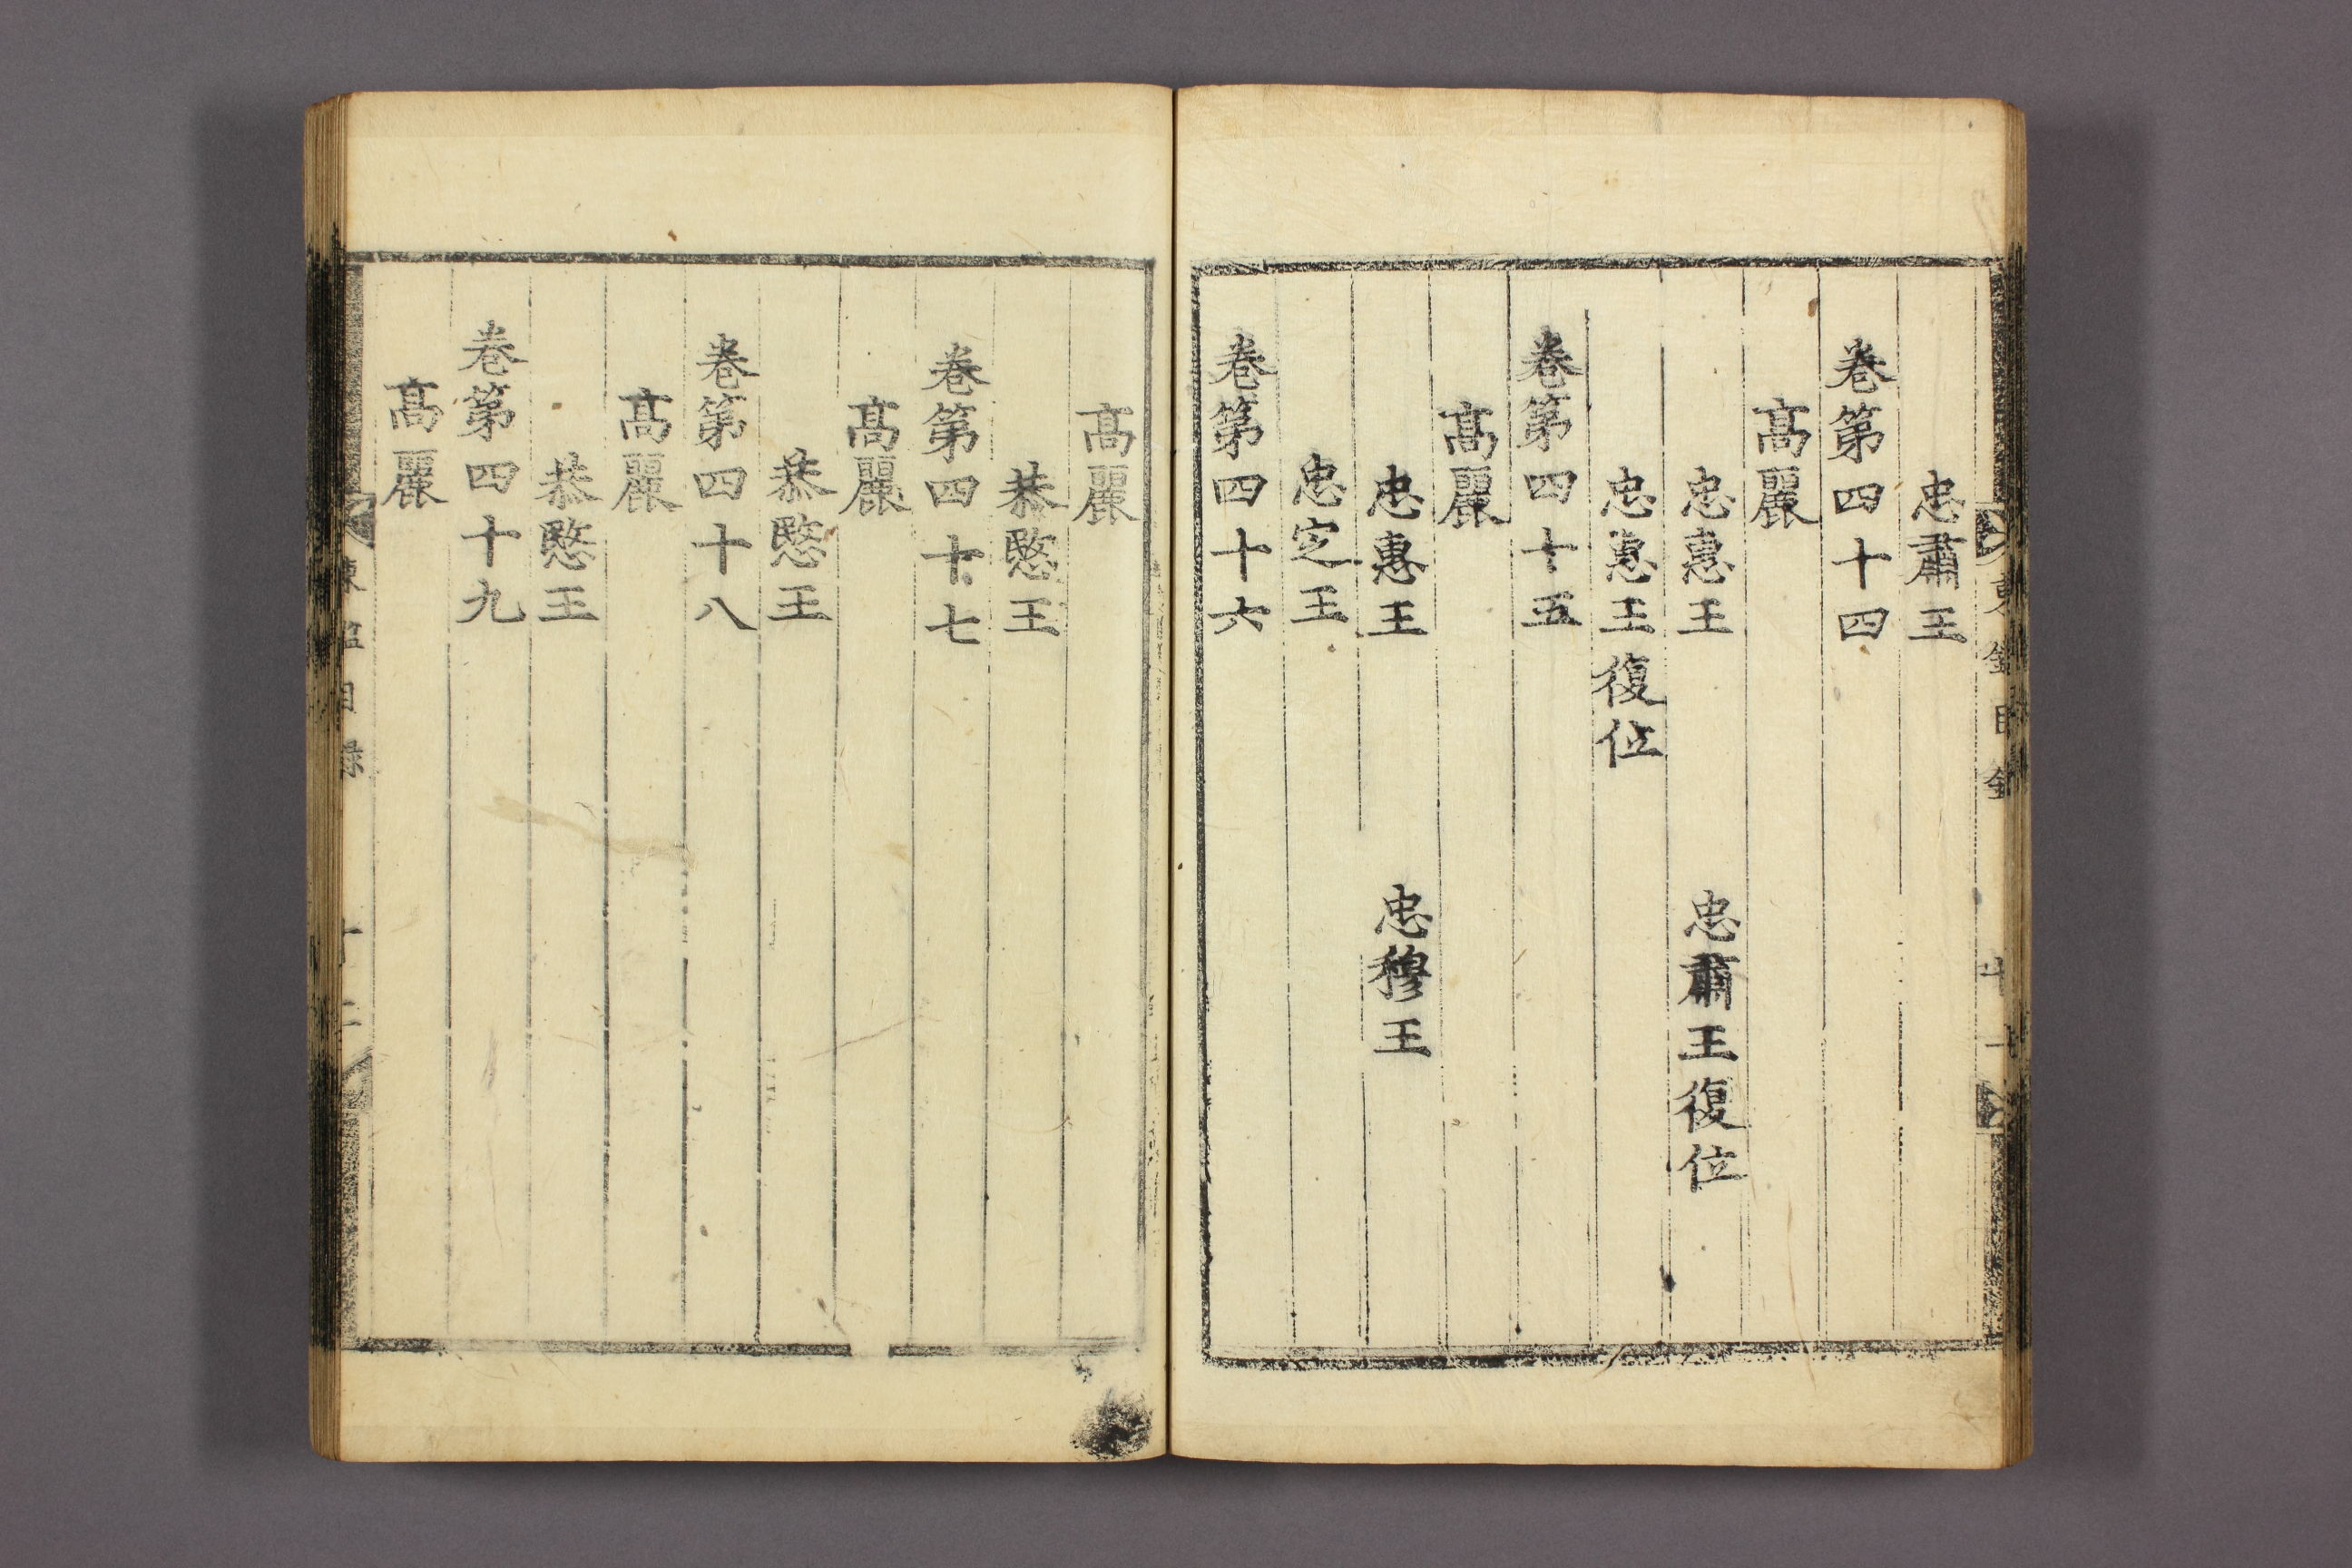 忠肅王
卷第四十四
高麗
忠惠王 忠肅王復位
忠惠王復位
卷第四十五
高麗
忠惠王 忠穆王
忠定王
卷第四十六
高麗
恭愍王
卷第四十七
高麗
恭愍王
卷第四十八
高麗
恭愍王
卷第四十九
高麗